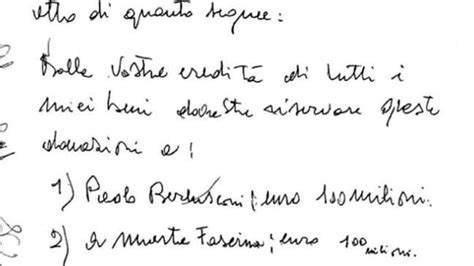 etto di quanto segue:
Dalla vostra eredità di tutti i
miei beni dovreste riservare queste
donazioni a:
1) Paolo Berlusconi; euro 100 milioni.
2) a Marta Fascina; euro 100 milioni.